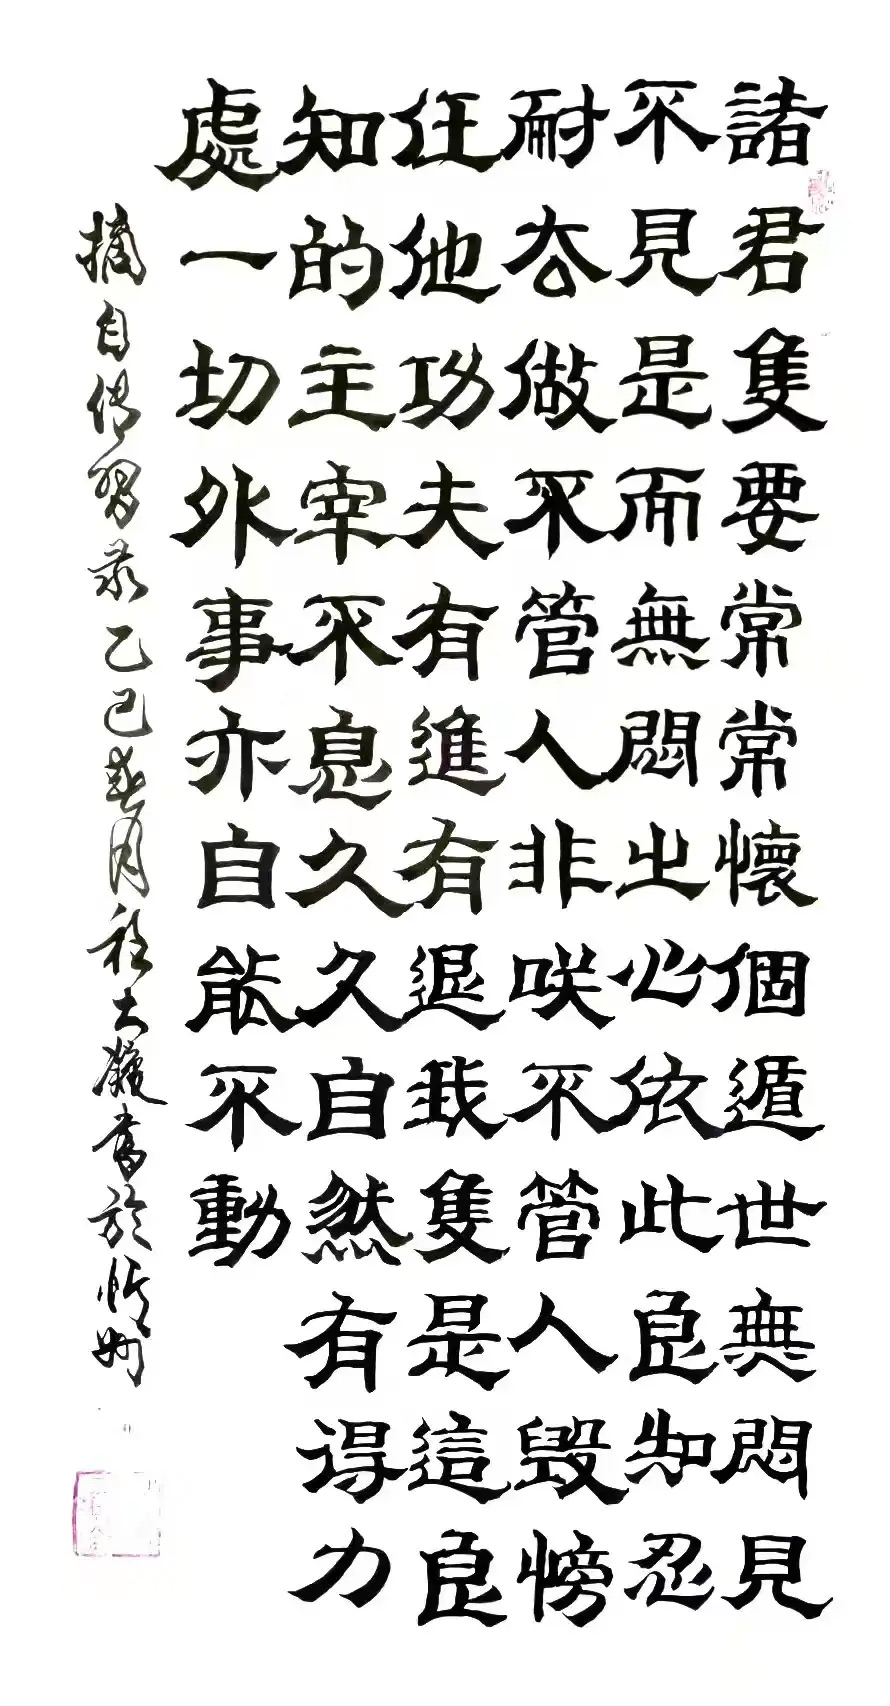 諸君隻要常常懷個遁世無悶見
不見是而無悶之心依此良知忍
耐去做不管人非咲不管人毀愰
任他功夫有進有退我隻是這良
知的主宰不息久久自然有得力
處一切外事亦自能不動
摘自传習录乙巳 月程 書於忻州